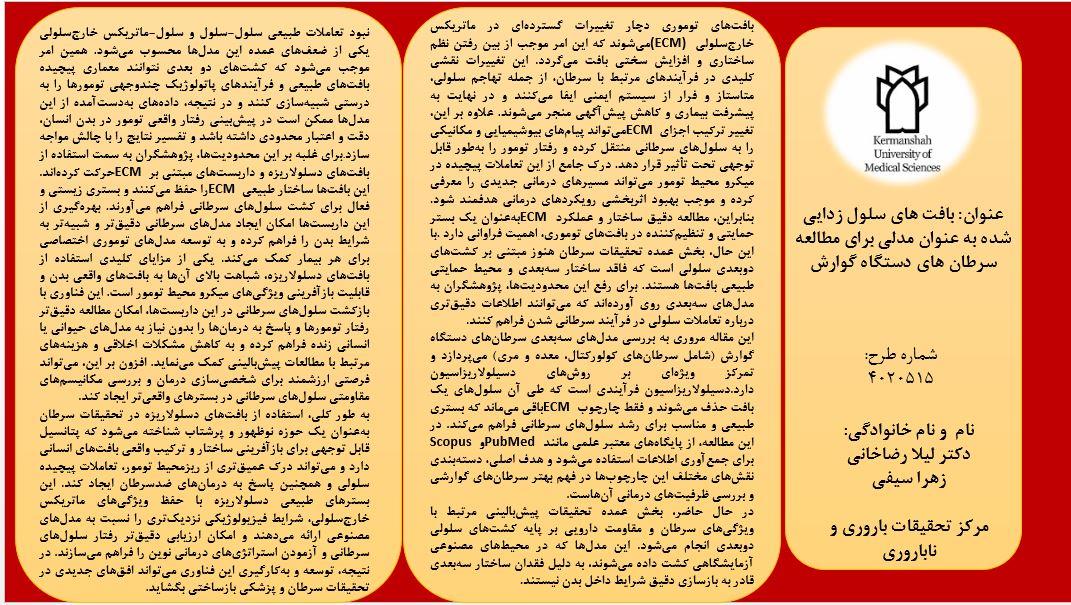 Kermanshah
University of
Medical Sciences
عنوان: بافت های سلول زدایی
شده به عنوان مدلی برای مطالعه
سرطان های دستگاه گوارش
شماره طرح:
۴۰۲۰۵۱۵
نام و نام خانوادگی:
دکتر لیلا رضاخانی
زهرا سیفی
مرکز تحقیقات باروری و
ناباروری
بافت‌های توموری دچار تغییرات گسترده‌ای در ماتریکس
خارج‌سلولی (ECM)می‌شوند که این امر موجب از بین رفتن نظم
ساختاری و افزایش سختی بافت می‌گردد. این تغییرات نقشی
کلیدی در فرآیندهای مرتبط با سرطان، از جمله تهاجم سلولی،
متاستاز و فرار از سیستم ایمنی ایفا می‌کنند و در نهایت به
پیشرفت بیماری و کاهش پیش‌آگهی منجر می‌شوند. علاوه بر این،
تغییر ترکیب اجزای ECMمی‌تواند پیام‌های بیوشیمیایی و مکانیکی
را به سلول‌های سرطانی منتقل کرده و رفتار تومور را به‌طور قابل
توجهی تحت تأثیر قرار دهد. درک جامع از این تعاملات پیچیده در
میکرو محیط تومور می‌تواند مسیرهای درمانی جدیدی را معرفی
کرده و موجب بهبود اثربخشی رویکردهای درمانی هدفمند شود.
بنابراین، مطالعه دقیق ساختار و عملکرد ECMبه‌عنوان یک بستر
حمایتی و تنظیم‌کننده در بافت‌های توموری، اهمیت فراوانی دارد .با
این حال، بخش عمده تحقیقات سرطان هنوز مبتنی بر کشت‌های
دوبعدی سلولی است که فاقد ساختار سه‌بعدی و محیط حمایتی
طبیعی بافت‌ها هستند. برای رفع این محدودیت‌ها، پژوهشگران به
مدل‌های سه‌بعدی روی آورده‌اند که می‌توانند اطلاعات دقیق‌تری
درباره تعاملات سلولی در فرآیند سرطانی شدن فراهم کنند.
این مقاله مروری به بررسی مدل‌های سه‌بعدی سرطان‌های دستگاه
گوارش (شامل سرطان‌های کولورکتال، معده و مری) می‌پردازد و
تمرکز ویژه‌ای بر روش‌های دسیلولاریزاسیون
دارد.دسیلولاریزاسیون فرآیندی است که طی آن سلول‌های یک
بافت حذف می‌شوند و فقط چارچوب ECMباقی می‌ماند که بستری
طبیعی و مناسب برای رشد سلول‌های سرطانی فراهم می‌کند. در
این مطالعه، از پایگاه‌های معتبر علمی مانند PubMedو Scopus
برای جمع‌آوری اطلاعات استفاده می‌شود و هدف اصلی، دسته‌بندی
نقش‌های مختلف این چارچوب‌ها در فهم بهتر سرطان‌های گوارشی
و بررسی ظرفیت‌های درمانی آن‌هاست.
در حال حاضر، بخش عمده تحقیقات پیش‌بالینی مرتبط با
ویژگی‌های سرطان و مقاومت دارویی بر پایه کشت‌های سلولی
دوبعدی انجام می‌شود. این مدل‌ها که در محیط‌های مصنوعی
آزمایشگاهی کشت داده می‌شوند، به دلیل فقدان ساختار سه‌بعدی
قادر به بازسازی دقیق شرایط داخل بدن نیستند.
نبود تعاملات طبیعی سلول-سلول و سلول-ماتریکس خارج‌سلولی
یکی از ضعف‌های عمده این مدل‌ها محسوب می‌شود. همین امر
موجب می‌شود که کشت‌های دو بعدی نتوانند معماری پیچیده
بافت‌های طبیعی و فرآیندهای پاتولوژیک چندوجهی تومورها را به
درستی شبیه‌سازی کنند و در نتیجه، داده‌های به‌دست‌آمده از این
مدل‌ها ممکن است در پیش‌بینی رفتار واقعی تومور در بدن انسان،
دقت و اعتبار محدودی داشته باشد و تفسیر نتایج را با چالش مواجه
سازد.برای غلبه بر این محدودیت‌ها، پژوهشگران به سمت استفاده از
بافت‌های دسلولاریزه و داربست‌های مبتنی بر ECMحرکت کرده‌اند.
این بافت‌ها ساختار طبیعی ECMرا حفظ می‌کنند و بستری زیستی و
فعال برای کشت سلول‌های سرطانی فراهم می‌آورند. بهره‌گیری از
این داربست‌ها امکان ایجاد مدل‌های سرطانی دقیق‌تر و شبیه‌تر به
شرایط بدن را فراهم کرده و به توسعه مدل‌های توموری اختصاصی
برای هر بیمار کمک می‌کند. یکی از مزایای کلیدی استفاده از
بافت‌های دسلولاریزه، شباهت بالای آن‌ها به بافت‌های واقعی بدن و
قابلیت بازآفرینی ویژگی‌های میکرو محیط تومور است. این فناوری با
بازکشت سلول‌های سرطانی در این داربست‌ها، امکان مطالعه دقیق‌تر
رفتار تومورها و پاسخ به درمان‌ها را بدون نیاز به مدل‌های حیوانی یا
انسانی زنده فراهم کرده و به کاهش مشکلات اخلاقی و هزینه‌های
مرتبط با مطالعات پیش‌بالینی کمک می‌نماید. افزون بر این، می‌تواند
فرصتی ارزشمند برای شخصی‌سازی درمان و بررسی مکانیسم‌های
مقاومتی سلول‌های سرطانی در بسترهای واقعی‌تر ایجاد کند.
به طور کلی، استفاده از بافت‌های دسلولاریزه در تحقیقات سرطان
به‌عنوان یک حوزه نوظهور و پرشتاب شناخته می‌شود که پتانسیل
قابل توجهی برای بازآفرینی ساختار و ترکیب واقعی بافت‌های انسانی
دارد و می‌تواند درک عمیق‌تری از ریزمحیط تومور، تعاملات پیچیده
سلولی و همچنین پاسخ به درمان‌های ضدسرطان ایجاد کند. این
بسترهای طبیعی دسلولاریزه با حفظ ویژگی‌های ماتریکس
خارج‌سلولی، شرایط فیزیولوژیکی نزدیک‌تری را نسبت به مدل‌های
مصنوعی ارائه می‌دهند و امکان ارزیابی دقیق‌تر رفتار سلول‌های
سرطانی و آزمودن استراتژی‌های درمانی نوین را فراهم می‌سازند. در
نتیجه، توسعه و به‌کارگیری این فناوری می‌تواند افق‌های جدیدی در
تحقیقات سرطان و پزشکی بازساختی بگشاید.